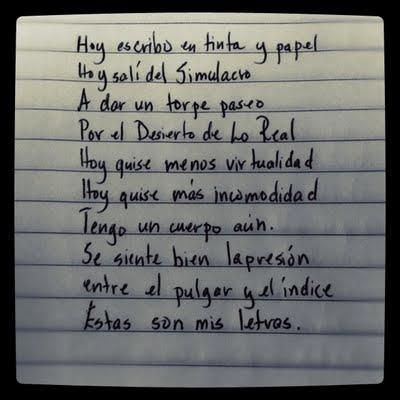 Hoy escribo en tinta y papel
Hoy salí del Simulacro
A dar un torpe paseo
Por el Desierto de Lo Real
Hoy quise menos virtualidad
Hoy quise más incomodidad
Tengo un cuerpo aún.
Se siente bien la presión
entre el pulgar y el índice
Éstas son mis letras.